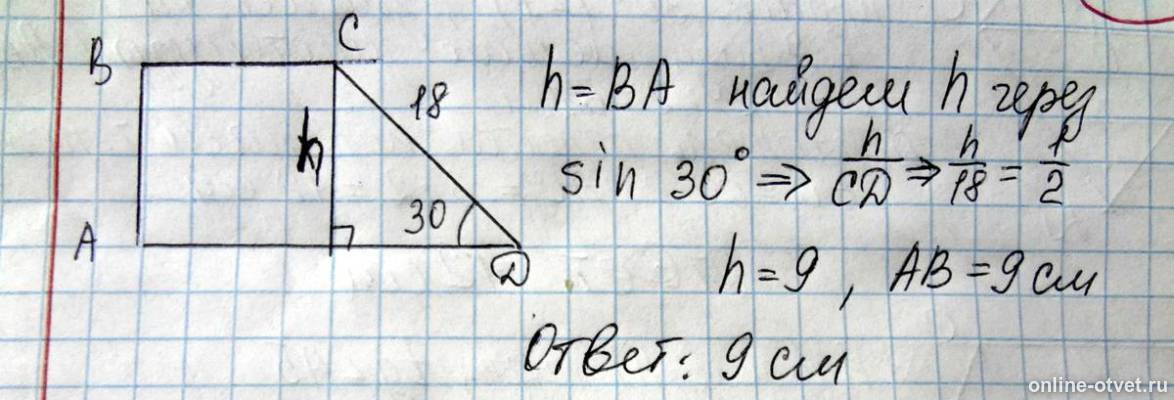 B
C
18
h = BA найдем h через
h
sin 30° => h/CD => h/18 = 1/2
30
A
D
h = 9 , AB = 9 см
Ответ: 9 см
online-otvet.ru